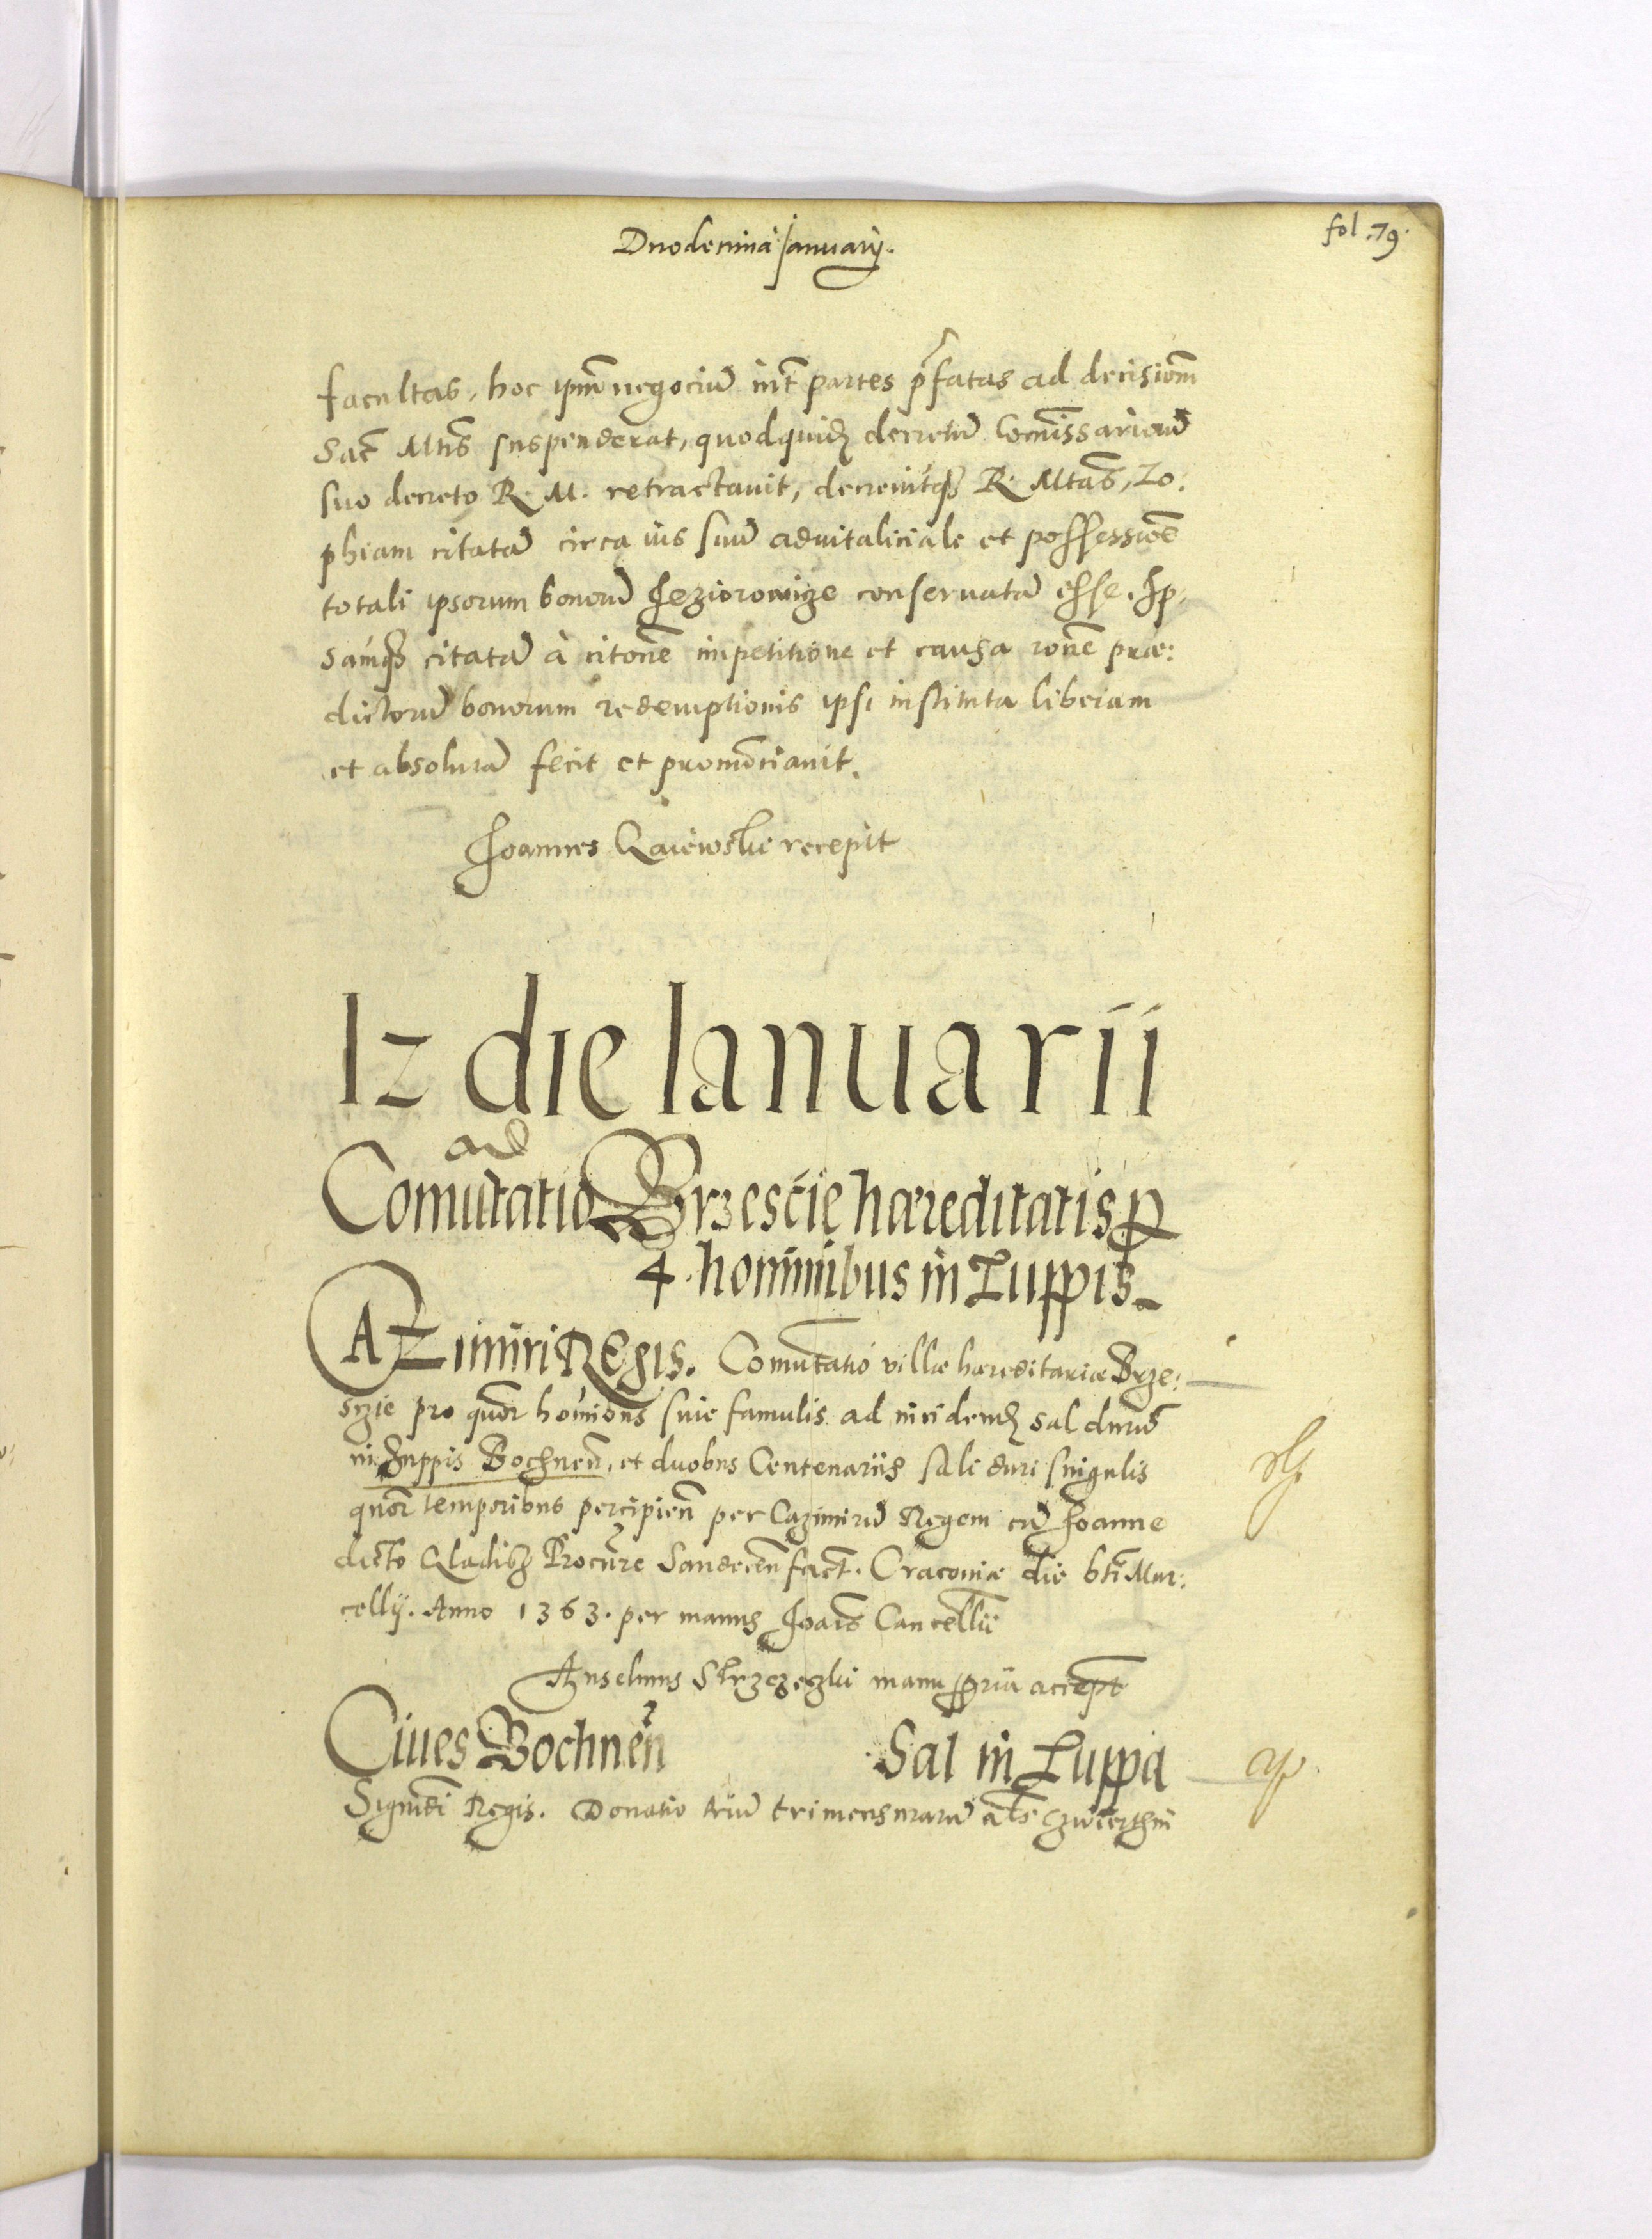 Duodecima Januarij.
fol. 79.
facultas, hoc ipm̃ negociũ int̃ partes p̃fatas ad decisionẽ
Sac̃ Mtis suspenderat, quodquidẽ decretũ Comĩssariorũ
suo decreto R. M. retractauit, decreuitqȝ R. Mtas, Zo:
phiam citatã circa ius suũ aduitaliciale et possessionẽ
totali ipsorum bonorũ Jeziorowicze conseruatã esse. Ip,
samqȝ citatã à citoñe impetitione et causa roñe præ:
dictorũ bonorum redemptionis ipsi instituta liberam
et absolutã fecit et pronũciauit.
Joannes recepit
12 die Ianuarii
ad
Comutatio Brzescie hæreditatis p
4. hominibus in Zuppis
CAZimiri REgis. Comutatio villæ hæreditariæ Brze:
szie pro quor hominibus siue famulis ad incidendũ sal durũ
in Zuppis Bochneñ, et duobus Centenariis salis duri singulis
quor temporibus percipieñ per Cazimirũ Regem cũ Joanne
dicto Gladisz Procure Sandeceñ fact. Cracoviæ die bti Mar:
cellij. Anno 1363. per manus Joañis Cancellrii
Anselmus manu ppria accepit
Ciues Bochneñ Sal in Zuppa
Sigmũdi Regis. Donatio triũ trimensurarũ als czwierthni